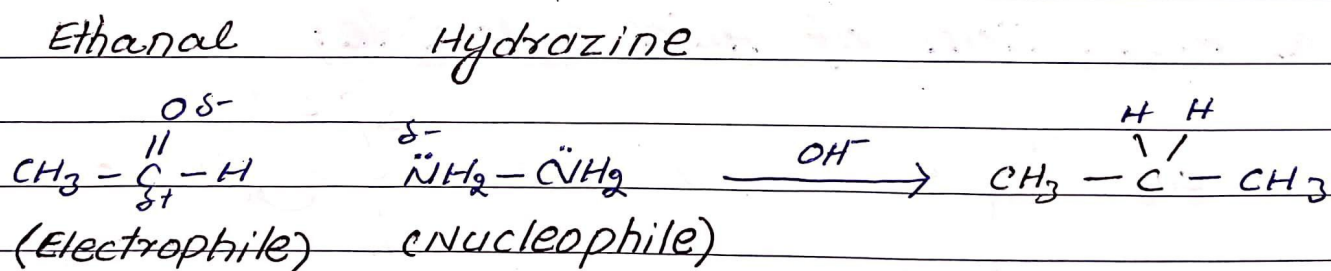 Ethanal Hydrazine
O δ-
||
CH3 - C - H δ- N̈H2 - N̈H2 OH⁻ → CH3 - C - CH3
δ+ H H
(Electrophile) (Nucleophile)